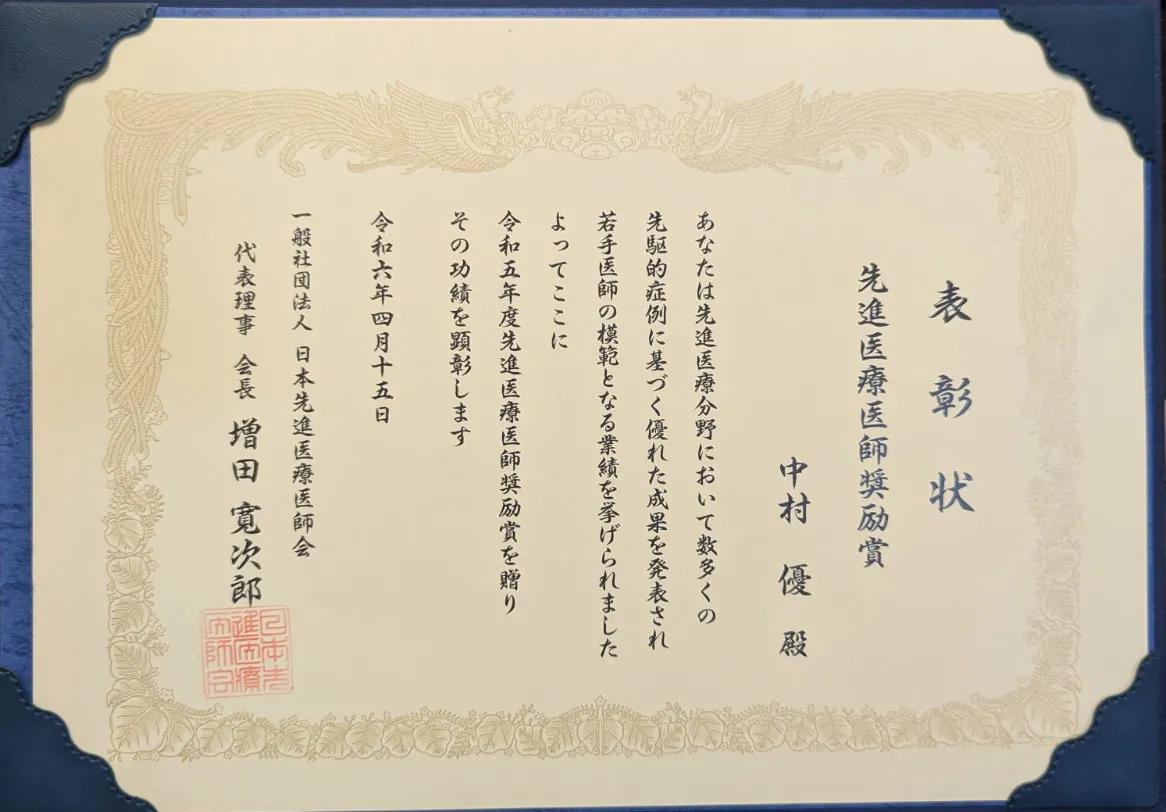 表彰状
先進医療医師奨励賞
中村 優 殿
あなたは先進医療分野において数多くの
先駆的症例に基づく優れた成果を発表され
若手医師の模範となる業績を挙げられました
よってここに
令和五年度先進医療医師奨励賞を贈り
その功績を顕彰します
令和六年四月十五日
一般社団法人 日本先進医療医師会
代表理事 会長 増田 寛次郎
日本先
進医療
医師会